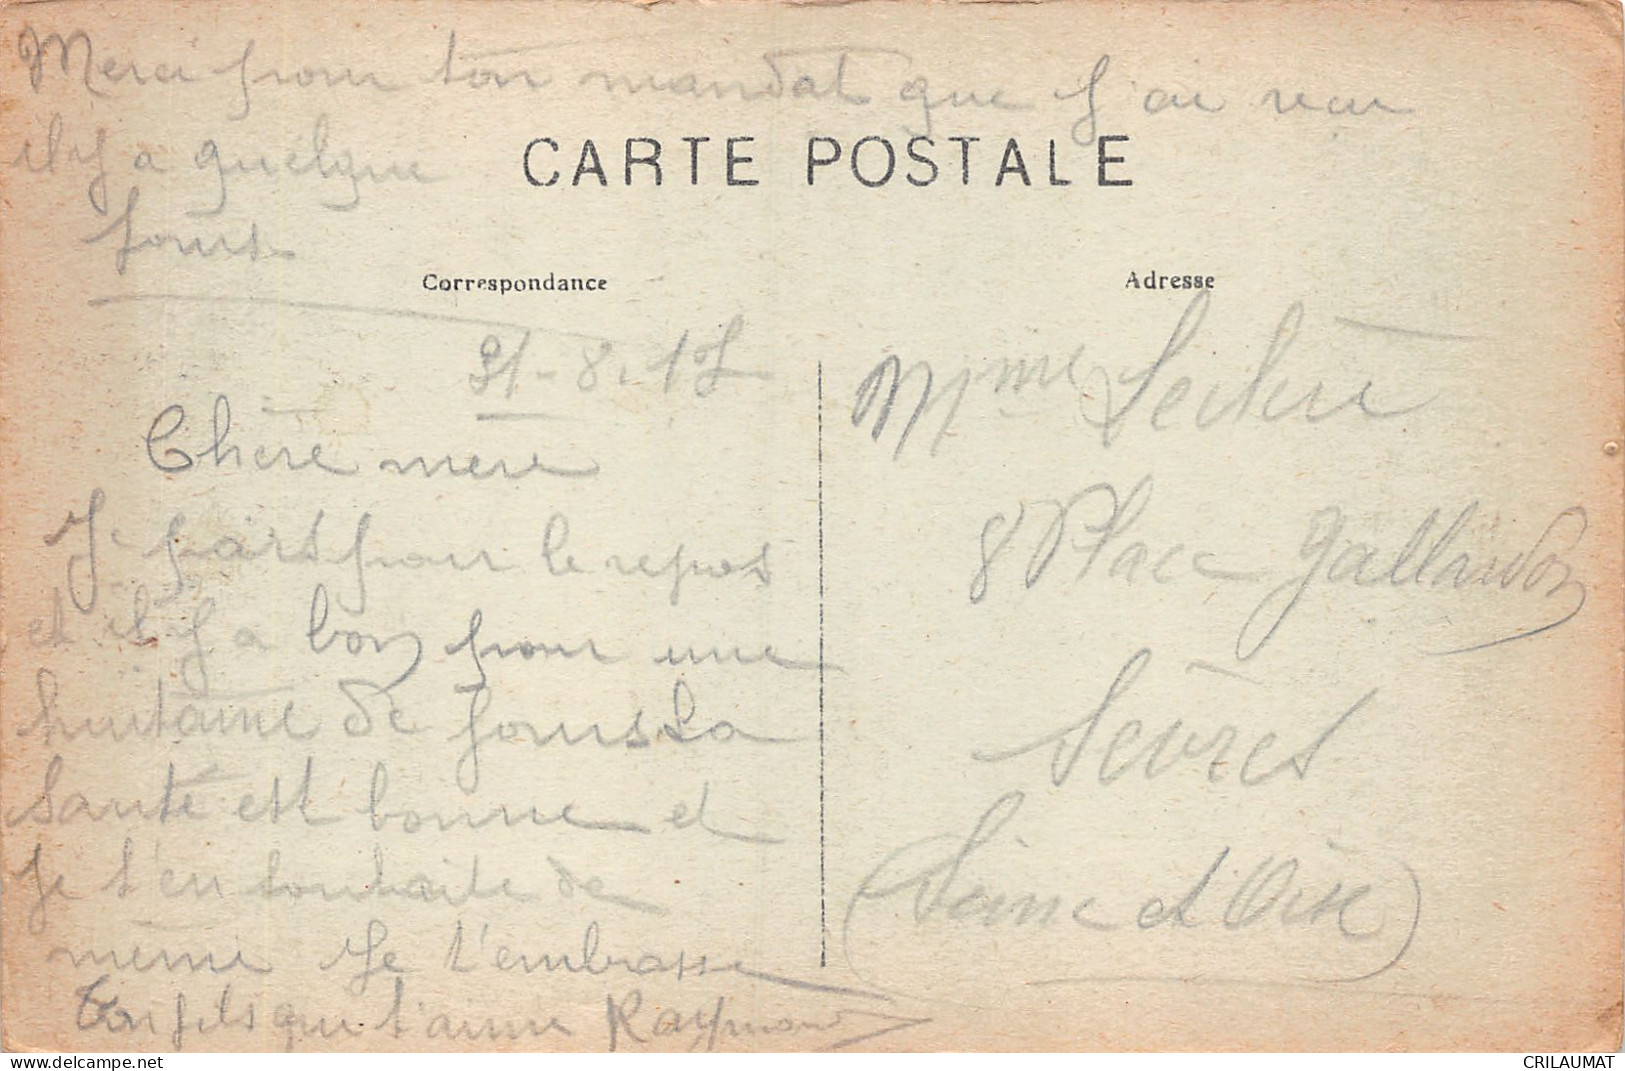 Merci pour ton mandat que j'ai reçu
il y a quelque
jours
CARTE POSTALE
Correspondance
31-8-17
Chère mere
Je pars pour le repos
et il y a bon pour une
huitaine de jours La
Santé est bonne et
je t'en souhaite de
même Je t'embrasse
Ton fils qui t'aime Raymond
Adresse
Mme Leclère
8 Place gallardon
Sèvres
(Seine et Oise)
CRILAUMAT